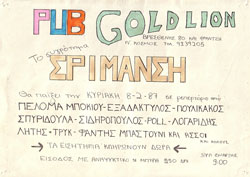 PUB GOLD LION
ΒΡΕΣΘΕΝΗΣ 80 ΚΑΙ ΦΡΑΝΤΖΗ
Ν. ΚΟΣΜΟΣ ΤΗΛ. 9239205
Το συγκρότημα
ΣΡΙΜΑΝΣΗ
Θα παίξει την ΚΥΡΙΑΚΗ 8-2-87 σε ρεπερτόριο από
ΠΕΛΟΜΑ ΜΠΟΚΙΟΥ-ΕΞΑΔΑΚΤΥΛΟΣ-ΠΟΥΛΙΚΑΚΟΣ
ΣΠΥΡΙΔΟΥΛΑ-ΣΙΔΗΡΟΠΟΥΛΟΣ-POLL-ΛΟΓΑΡΙΔΗΣ
ΛΗΤΗΣ-ΤΡΥΚ-ΦΑΝΤΗΣ ΜΠΑΣΤΟΥΝΙ ΚΑΙ ΑΣΣΟΙ
ΤΑ ΕΙΣΙΤΗΡΙΑ ΚΛΗΡΩΝΟΥΝ ΔΩΡΑ
ΕΙΣΟΔΟΣ ΜΕ ΑΝΑΨΥΚΤΙΚΟ Η ΜΠΥΡΑ 350
9:00